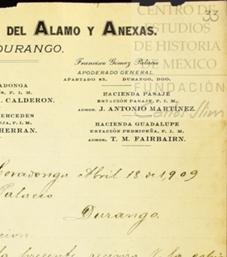 CENTRO DE
ESTUDIOS
DE HISTORIA
DE MÉXICO
FUNDACIÓN
Carlos Slim
33
DEL ALAMO Y ANEXAS.
DURANGO.
Francisco Gómez Palacio
APODERADO GENERAL
APARTADO 85, DURANGO, DGO.
ADONGA
, F. I. M.
. CALDERON.
HACIENDA PASAJE
ESTACIÓN PASAJE, F. I. M.
ADMOR. J. ANTONIO MARTÍNEZ
ERCEDES
JA, F. I. M.
HERRAN.
HACIENDA GUADALUPE
ESTACIÓN PEDRICEÑA, F. I. M.
ADMOR. T. M. FAIRBAIRN.
Covadonga Abril 18 de 1909
Palacio
Durango.